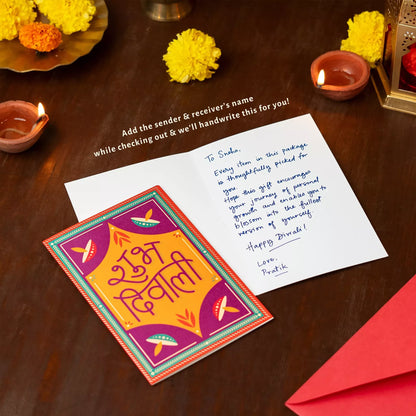 Add the sender & receiver's name
while checking out & we'll handwrite this for you!
To Sneha,
Every item in this package
is thoughtfully picked for
you.
Hope this gift encourages
your journey of personal
growth and enables you to
blossom into the fullest
version of yourself.
Happy Diwali!
Love,
Pratik
शुभ
दिवाली